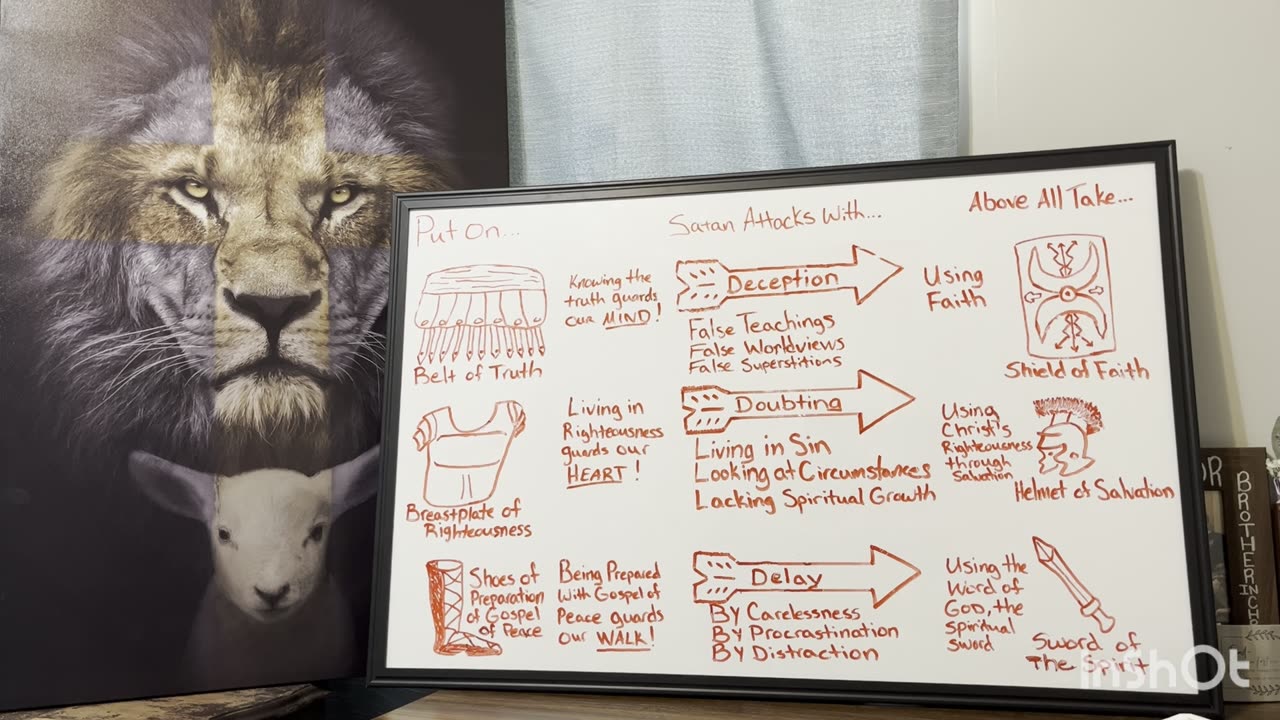 Put On...
Satan Attacks With...
Above All Take...
Knowing the
truth guards
our MIND!
Belt of Truth
Deception
False Teachings
False Worldviews
False Superstitions
Using
Faith
Shield of Faith
Living in
Righteousness
guards our
HEART!
Breastplate of
Righteousness
Doubting
Living in Sin
Looking at Circumstances
Lacking Spiritual Growth
Using
Christ's
Righteousness
through
Salvation
Helmet of Salvation
Shoes of
Preparation
of Gospel
of Peace
Being Prepared
With Gospel of
Peace guards
our WALK!
Delay
By Carelessness
By Procrastination
By Distraction
Using the
Word of
GOD, the
Spiritual
Sword
Sword of
The Spirit
InShOt